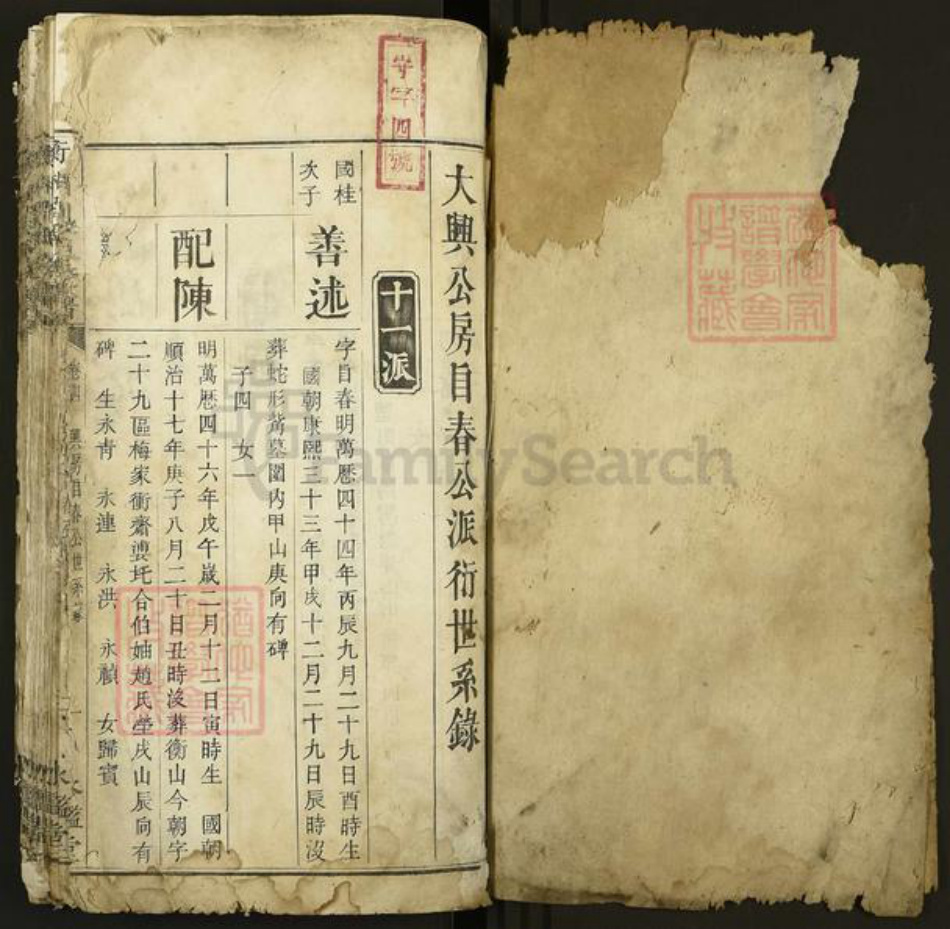 大興公房自春公派衍世系錄
十一派
國桂
次子
善述
字自春明萬曆四十四年丙辰九月二十九日酉時生
國朝康熙三十三年甲戌十二月二十九日辰時沒
葬蛇形觜墓園內甲山庚向有碑
子四 女一
配陳
明萬曆四十六年戊午歲二月十二日寅時生 國朝
順治十七年庚子八月二十日丑時沒葬衡山今朝字
二十九區梅家衝齋婆坵合伯妯趙氏塋戌山辰向有
碑 生永青 永連 永洪 永禎 女歸賓
四號
FamilySearch